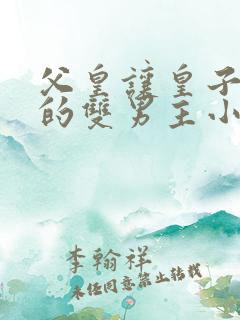 父皇讓皇子
的雙男主小
李翰祥
未经同意禁止转载